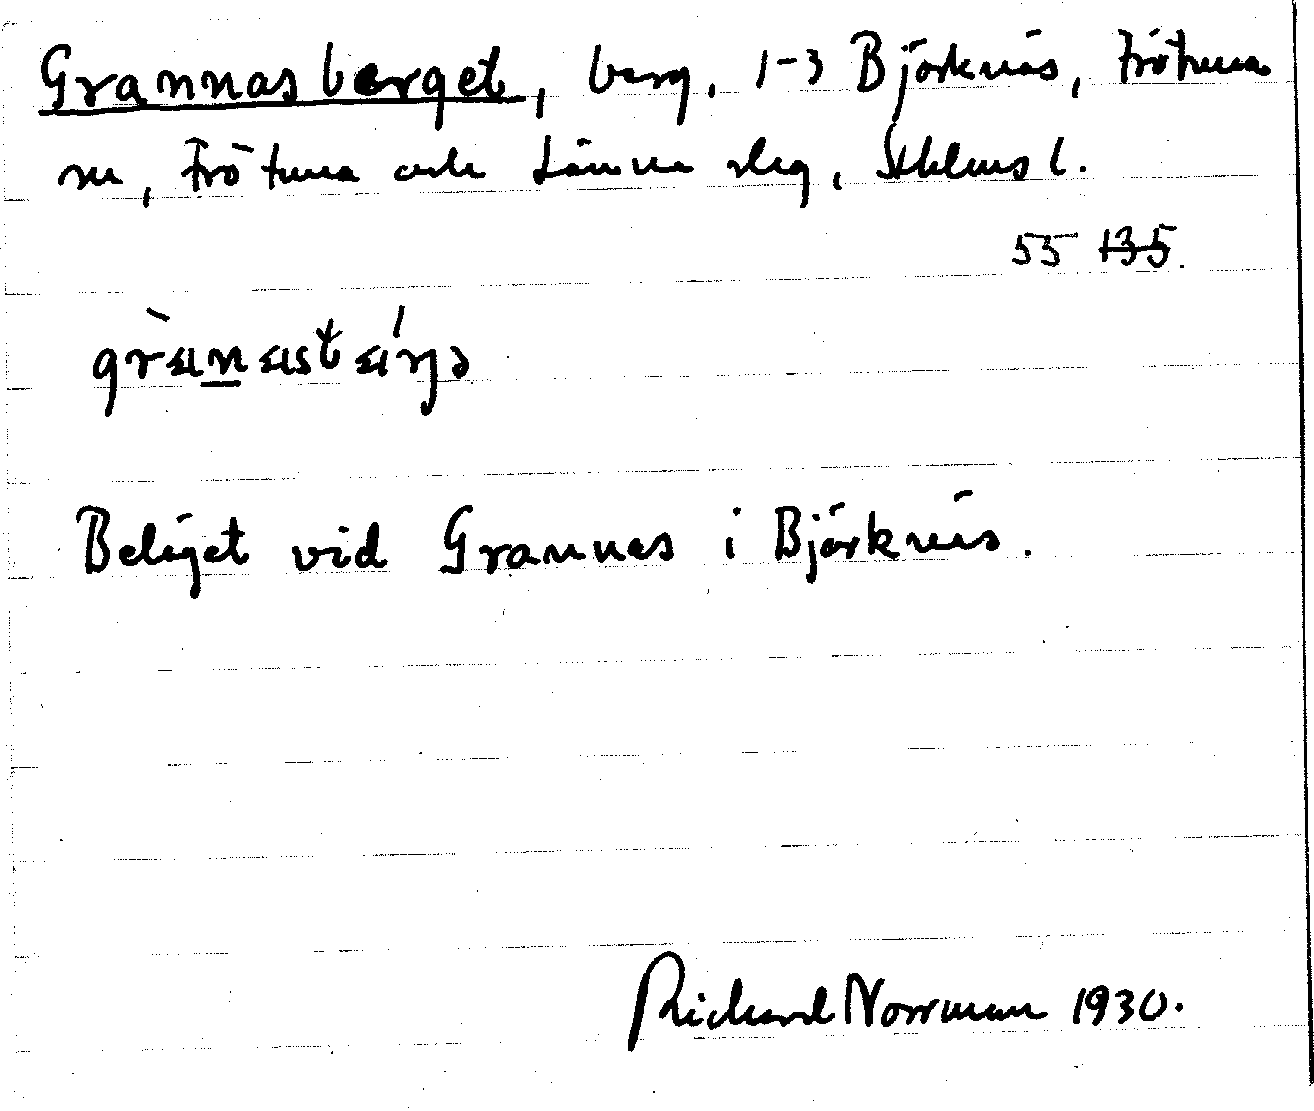 Grannasberget, berg, 1-3 Björknäs, Frötuna
sn, Frötuna och Länna slg, Sthlms l.
55 135.
Beläget vid Grannas i Björknäs.
Richard Norrman 1930.